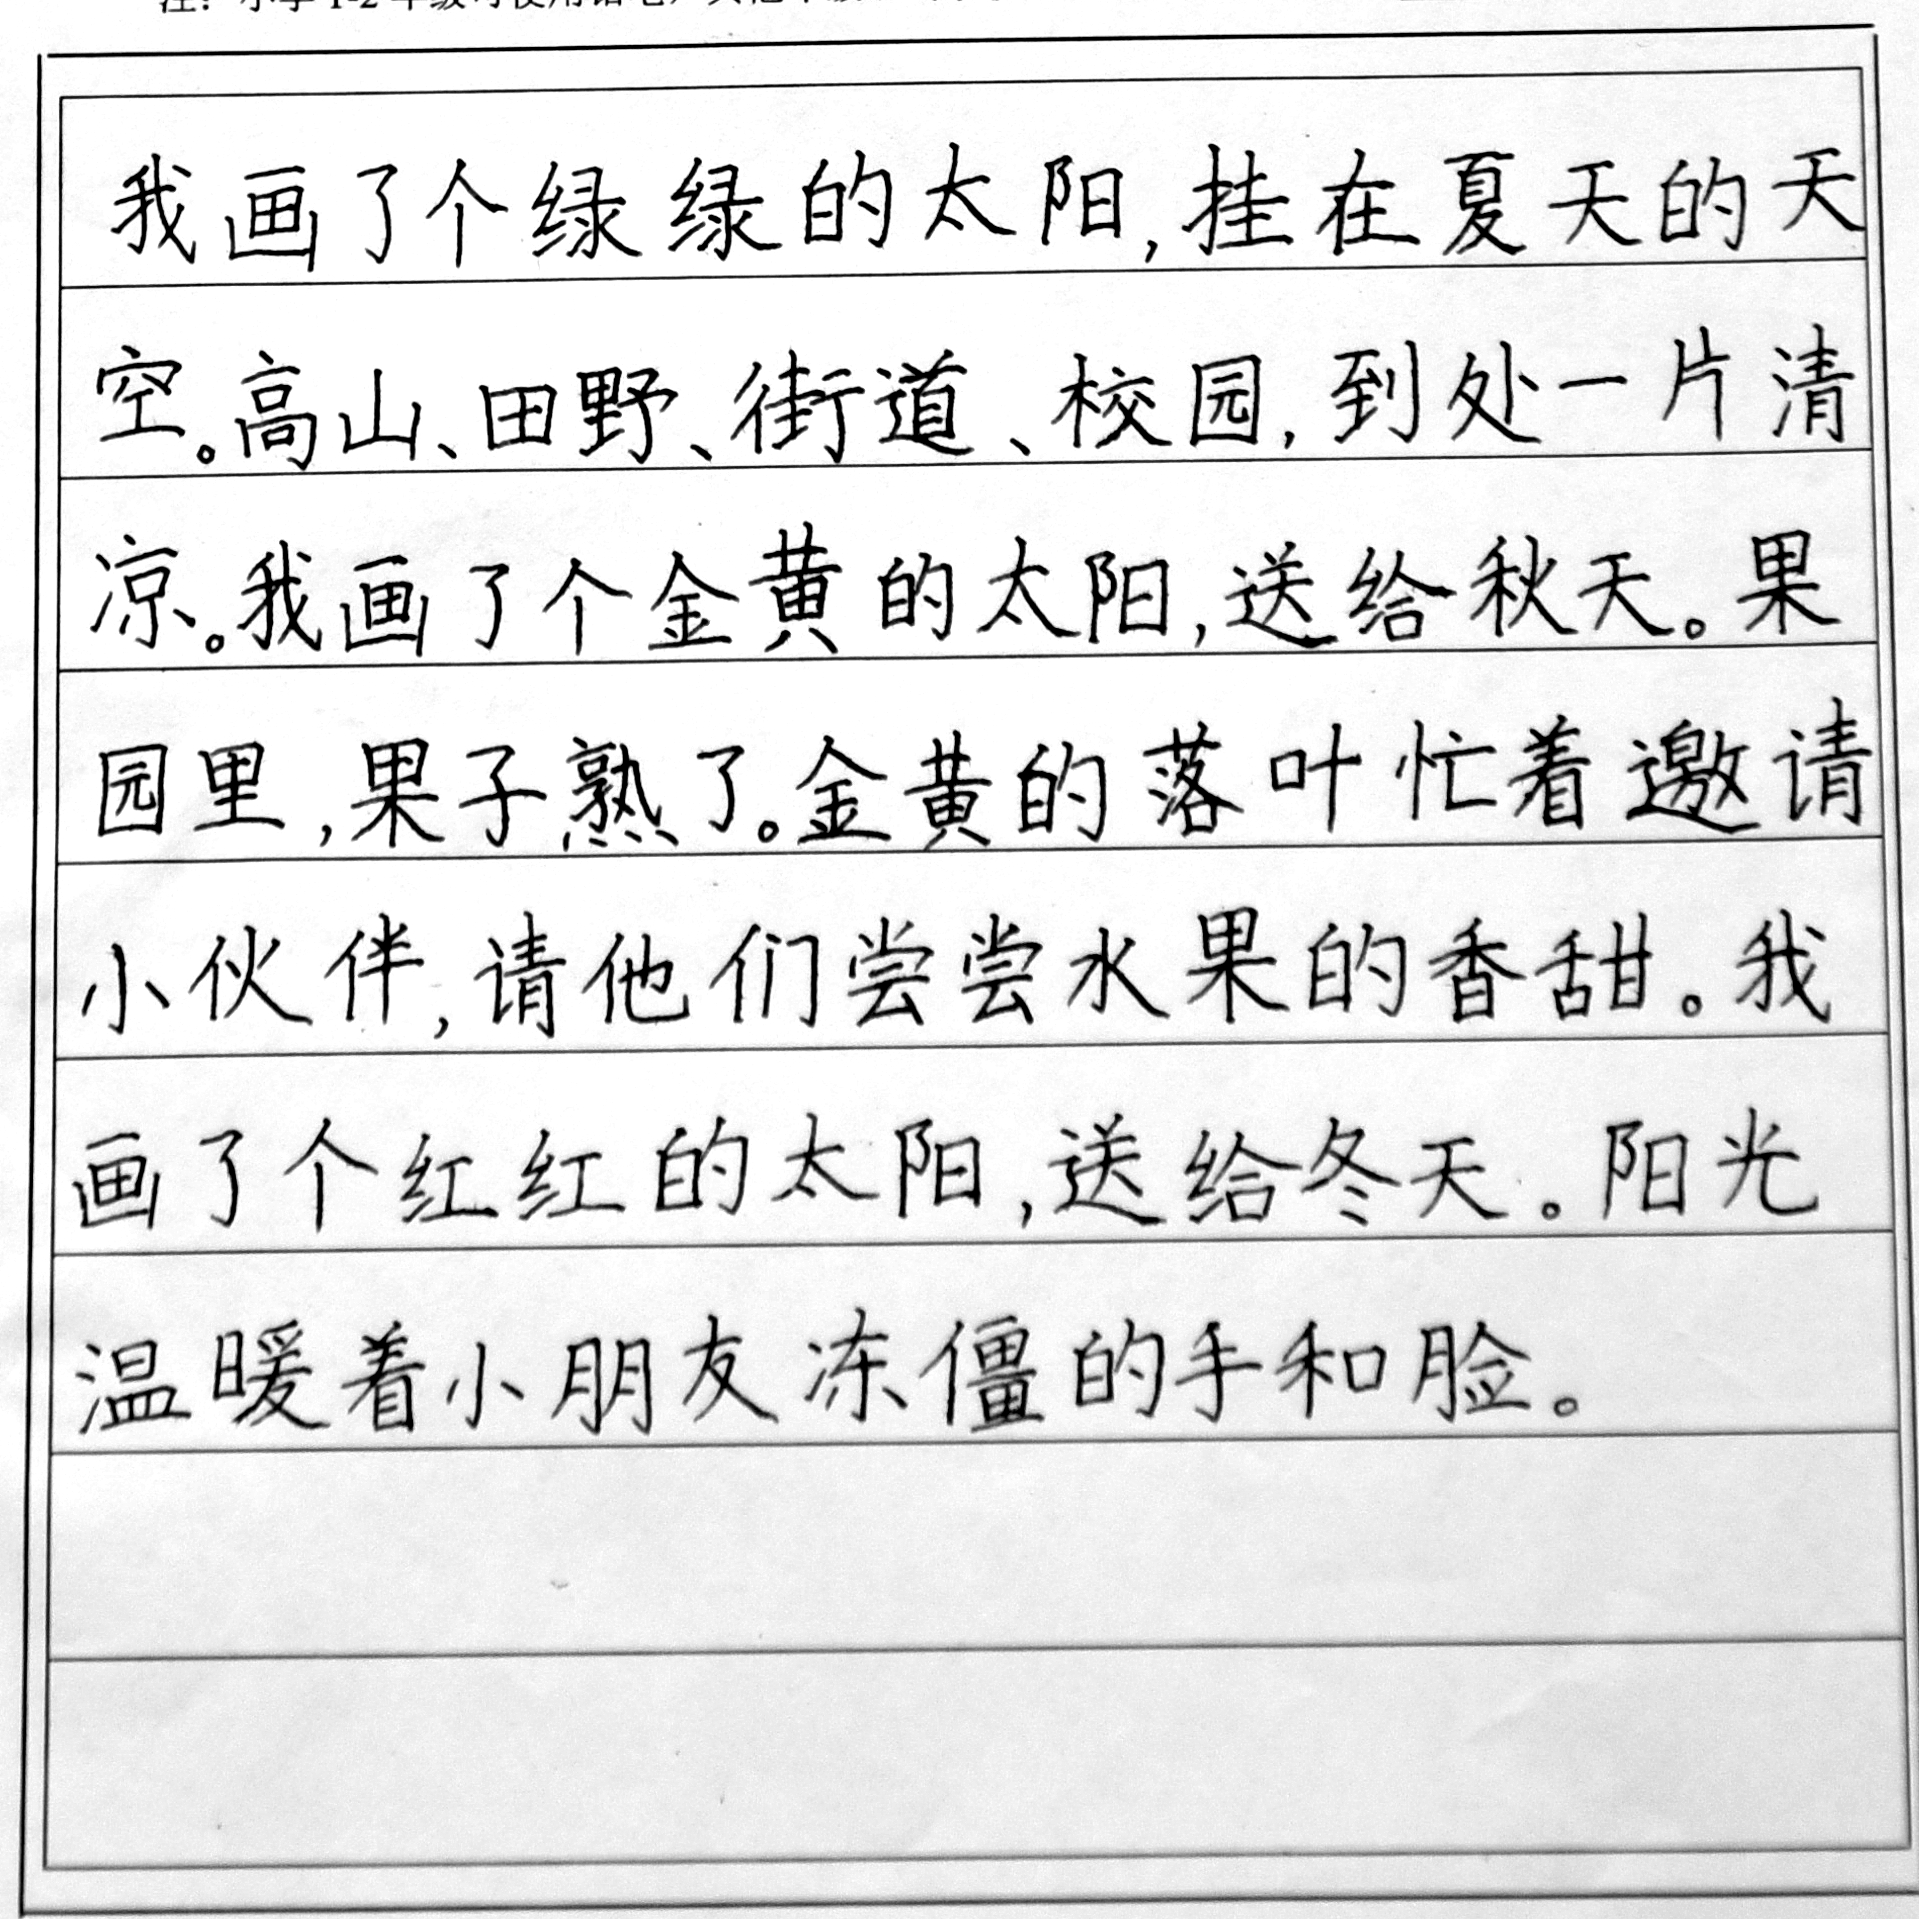 注：小学1-2年级可使用铅笔，其他年级
我画了个绿绿的太阳,挂在夏天的天
空。高山、田野、街道、校园,到处一片清
凉。我画了个金黄的太阳,送给秋天。果
园里,果子熟了。金黄的落叶忙着邀请
小伙伴,请他们尝尝水果的香甜。我
画了个红红的太阳,送给冬天。阳光
温暖着小朋友冻僵的手和脸。